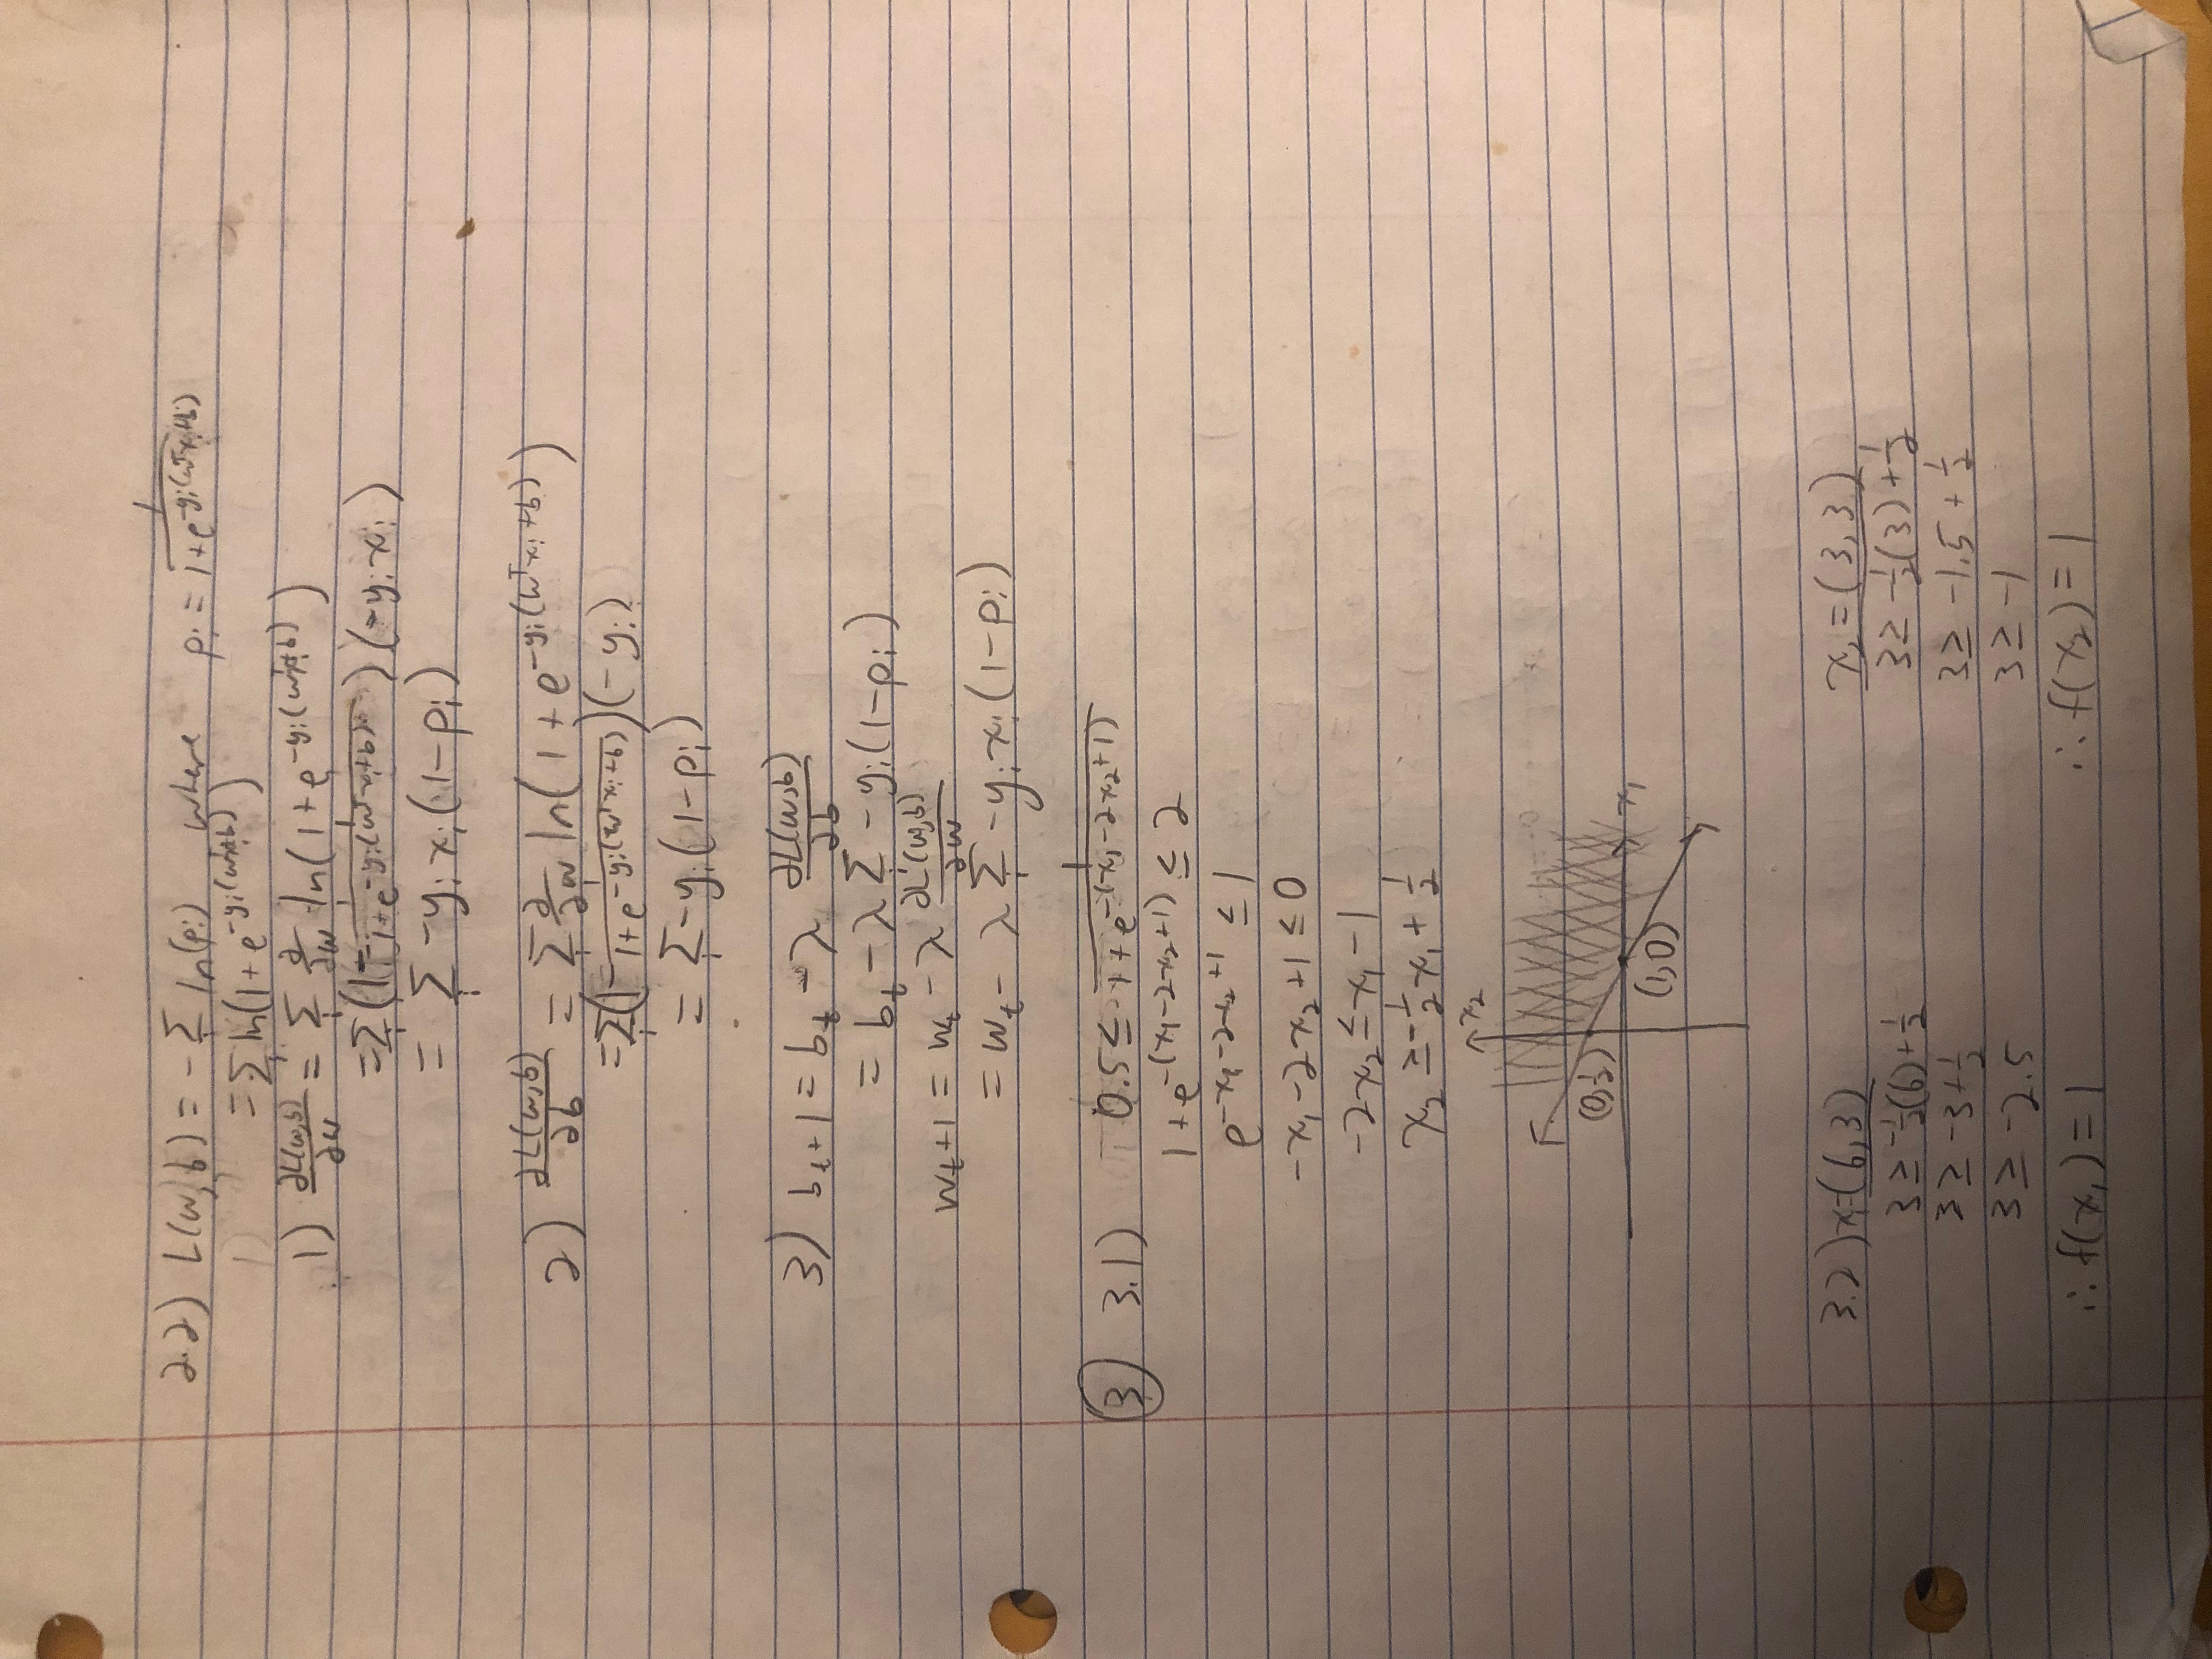 2.2) L(w,b) = - Σ_i ln(p_i) where p_i = 1/(1+e^{-y_i(w^T x_i+b)})
= Σ_i ln(1 + e^{-y_i(w^T x_i+b)})
1) ∂L(w,b)/∂w = Σ_i ∂/∂w ln(1 + e^{-y_i(w^T x_i+b)})
= Σ_i (1 - 1/(1+e^{-y_i(w^T x_i+b)}))(-y_i x_i)
= Σ_i -y_i x_i (1-p_i)
2) ∂L(w,b)/∂b = Σ_i ∂/∂w ln(1 + e^{-y_i(w^T x_i+b)})
= Σ_i (1 - 1/(1+e^{-y_i(w^T x_i+b)}))(-y_i)
= Σ_i -y_i (1-p_i)
3) b_t+1 = b_t - λ ∂L(w,b)/∂b
= b_t - λ Σ_i -y_i (1-p_i)
w_t+1 = w_t - λ ∂L(w,b)/∂w
= w_t - λ Σ_i -y_i x_i (1-p_i)
3 3.1) 0.5 ≤ 1/(1+e^{-(x_1-2x_2+1)})
1+e^{-(x_1-2x_2+1)} ≤ 2
e^{-x_1-2x_2+1} ≤ 1
-x_1-2x_2+1 ≤ 0
-2x_2 ≤ x_1 - 1
x_2 ≥ -1/2 x_1 + 1/2
x_2
(0,1/2)
x_1
(1,0)
3.2) x_1=(6,3) x_2 = (3,3)
3 ≥ -1/2(6)+1/2 3 ≥ -1/2(3)+1/2
3 ≥ -3+1/2 3 ≥ -1.5 + 1/2
3 ≥ -2.5 3 ≥ -1
∴ f(x_1) = 1 ∴ f(x_2) = 1